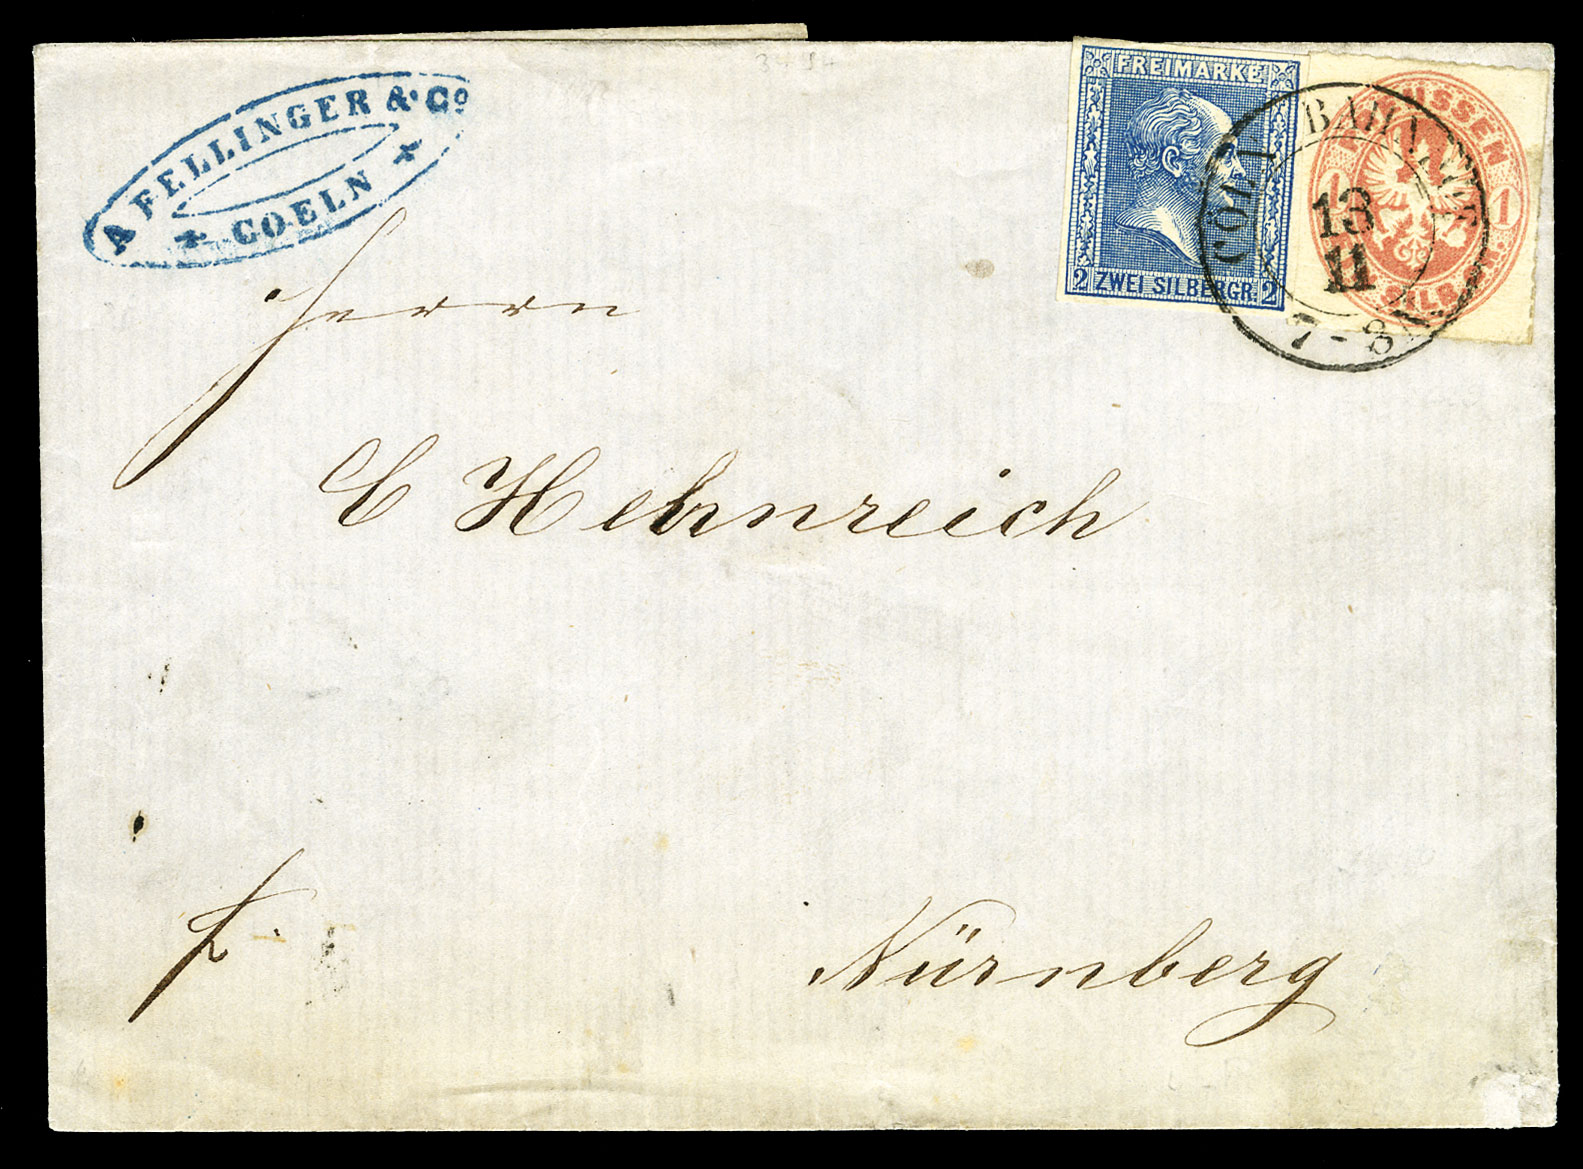 A FELLINGER & Co
COELN
FREIMARKE
2 ZWEI SILBERGR. 2
PREUSSEN
1 1
SILB. GR.
CÖLN BAHNHOF
13
11
7-8 N.
Herrn
C Hehnreich
fr.
Nürnberg